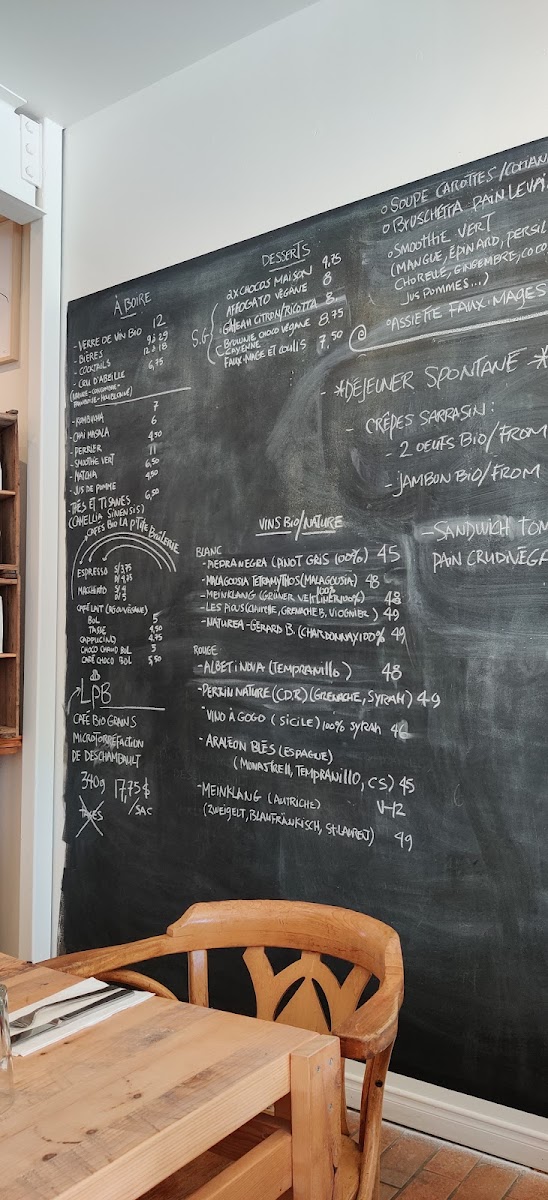 À BOIRE
- VERRE DE VIN BIO 12
- BIÈRES 9 à 29
- COCKTAILS 12 à 18
- CRU D'ABEILLE 6,75
- KOMBUCHA 7
- CHAI MASALA 6
- PERRIER 4,50
- SMOOTHIE VERT 11
- MATCHA 6,50
- JUS DE POMME 4,50
- THÉS ET TISANES 6,50
(CAMELLIA SINENSIS)
CAFÉS BIO LA P'TITE BRÛLERIE
ESPRESSO S/3,75
D/4,75
MACCHIATO S/4
D/5
CAFÉ LAIT (VÉGÉ)
BOL 5
TASSE 4,50
CAPPUCINO 4,75
CHOCO CHAUD BOL 5
CAFÉ CHOCO BOL 5,50
LPB
CAFÉ BIO GRAINS
MICROTORRÉFACTION
DE DESCHAMBAULT
340g 17,75$
/SAC
TAXES
DESSERTS
2X CHOCOS MAISON 4,75
AFFOGATO VÉGANE 8
S.G
- GÂTEAU CITRON/RICOTTA 8
- BROWNIE CHOCO VÉGANE 8,75
CAYENNE
FAUX-MAGE ET COULIS 7,50
VINS BIO/NATURE
BLANC
- PIEDRA NEGRA (PINOT GRIS 100%) 45
- MALAGOUSIA TETRAMYTHOS (MALAGOUSIA) 48
- MEINKLANG (GRÜNER VELTLINER 100%) 48
- LES PIOUS (CLAIRETTE, GRENACHE B, VIOGNIER) 49
- NATUREA-GÉRARD B. (CHARDONNAY 100% 49
ROUGE
- ALBET i NOIA (TEMPRANILLO) 48
- PERRIN NATURE (CDR) (GRENACHE, SYRAH) 49
- VINO À GOGO (SICILE) 100% SYRAH
- ARALEON BLÉS (ESPAGNE)
(MONASTRELL, TEMPRANILLO, CS) 45
- MEINKLANG (AUTRICHE) V-12
(ZWEIGELT, BLAUFRÄNKISCH, ST-LAURENT) 49
o SOUPE CAROTTES/
o BRUSCHETTA PAIN LEVAI
o SMOOTHIE VERT
(MANGUE, ÉPINARD, PERSIL
CHORELLE, GINGEMBRE, COCO
JUS POMMES...)
o ASSIETTE FAUX-MAGES
*DÉJEUNER SPONTANÉ*
- CRÊPES SARRASIN:
- 2 OEUFS BIO/FROM
- JAMBON BIO/FROM
- SANDWICH TOM
PAIN CRUDIVÉGA